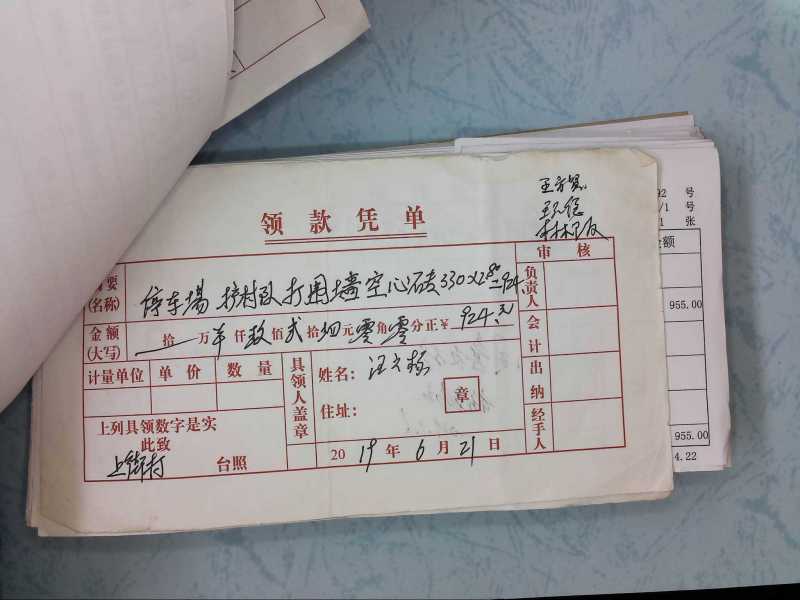 领款凭单
审 核
摘要
(名称)
停车场 护村队打围墙空心砖330×2.80=924
负责人
金额
(大写)
拾 万 仟 玖 佰 贰 拾 肆 元 零 角 零 分正 ¥ 924元
会计
计量单位 单 价 数 量
具领人盖章
姓名：汪文栋
住址：
章
出纳
上列具领数字是实
此致
上街村 台照
2019年6月21日
经手人
92 号
/1 号
1 张
金额
955.00
955.00
4.22